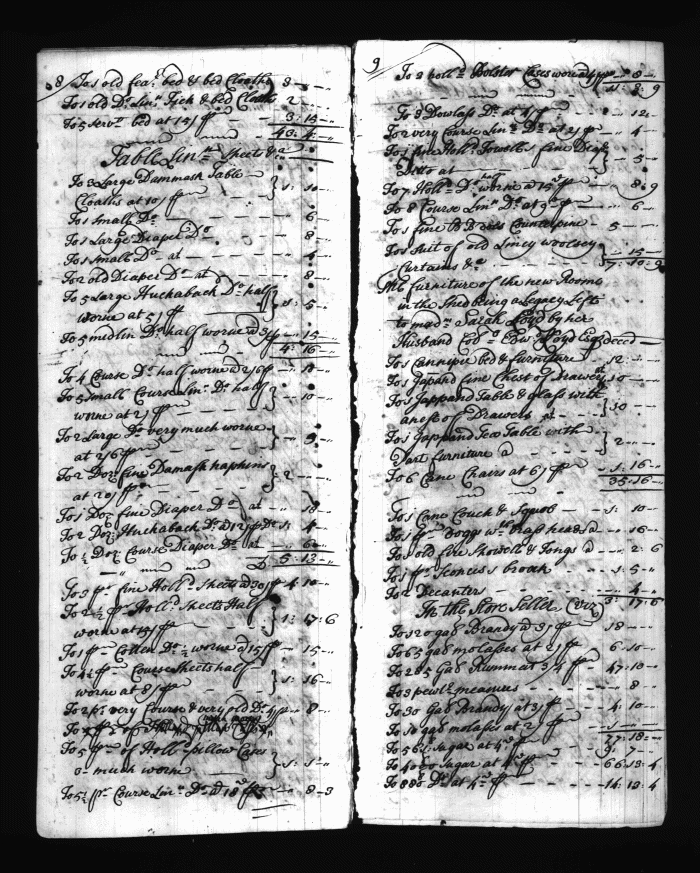 8 To 1 old fear. bed & bed Cloaths 3 - -
To 1 old Do. Lin. Tick & bed Cloaths 2 - -
To 5 servt. bed at 15/ 3:15 -
43:4 -
Table Lin. Sheets &a
To 3 Large Dammask Table
Cloaths at 10/ 1:10
To 1 small Do - - - 6 -
To 1 Large Diaper Do - - 8 -
To 1 small Do at - - - 4 -
To 2 old Diaper Do at - - 8 -
To 5 Large Huckaback Do half
worne at 5/ 1:5
To 5 midlin Do half worne a 3/ 15 -
4:16 -
To 4 Course Do half worne a 2/6 10 -
To 5 small Course Lin. Do half
worne at 2/ - - 10 -
To 2 Large Do very much worne
at 2/6 - - 5
To 2 Doz. fine Damask napkins
at 20/ 2 - -
To 1 Doz fine Diaper Do at - 18
To 2 Doz Huckaback Do a 12/ 1:4
To ½ Doz: Course Diaper Do at - 6 -
5:13 -
To 3 pr. fine Holld. Sheets a 30/ 4:10 -
To 2½ pr. Holld. Sheets Half
worne at 15/ 1:17:6
To 1 pr. Cotten Do. worne a 15/ - 15 -
To 4½ pr. Course Sheets half
worne at 8/ 1:16 -
To 2 pr. very Course & very old Do: 4/ 8 -
To 5 pr. of Holld. pillow Cases
much worne 1:1 -
To 5½ pr. Course Lin. Do. a 18d 8-3
9 To 2 holld. Bolster Cases worne 8 -
1:8:9
To 3 Dowlass Do. at 4/ 12 -
To 2 very Course Lin. Do. at 2/ - 4 -
To 1 fine Holld. Towell & fine Diap.
Ditto at - - 5 -
To 7 Holld. Do. worne a 15d 8:9
To 8 Course Lin. Do. at 9d - 6 -
To 1 fine Counterpine - 5 - -
To 1 suit of old Lincy woolsey
Curtains &a 15 -
7:10:9
The furniture of the new Rooms
in the Shed being a Legacy Left
to madm. Sarah Loyd by her
Husband Cod. Edw. Lloyd Esq. deced -
To 1 Cannipee bed & furniture 12 - -
To 1 Japand fine Chest of Drawers at 10 - -
To 1 Jappand Table & glass with
a nest of Drawers at - 10 - -
To 1 Jappand Tea Table with
Part furniture a 2 - -
To 6 Cane Chairs at 6/ 1:16 -
35:16 -
To 1 Cane Couch & Squob - 1:10 -
To 1 pr. Doggs wth. brass heads a - 16 -
To 1 old fire Showell & Tongs a - 2:6
To 1 pr. Sconces 1 broak - 1:5 -
To 2 Decanters - - 4 -
3:17:6
In the Store Seller (viz
To 120 gad Brandy a 3/ 18 - -
To 65 gad molasses at 2/ 6:10 -
To 285 Gad Rumm at 3/4 47:10 -
To 3 pewtr. measures - - 8 -
To 30 Gad Brandy at 3/ 4:10 -
To 10 gad molasses at 2/ 1 - -
77:18 -
To 561 Sugar at 4d 9:7 -
To 4000 Sugar at 4d 66:13:4
To 880 Do. at 4d 14:13:4